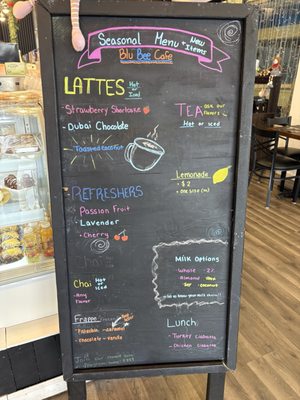 Seasonal Menu + New Items
Blu Bee Cafe
LATTES Hot or Iced
Strawberry Shortcake
Dubai Chocolate
Toasted coconut
TEA ask our flavors
Hot or iced
Lemonade
$2
one size (m)
REFRESHERS
Passion Fruit
Lavender
Cherry
Chai Hot or Iced
Any Flavor
Milk Options
Whole 2%
Almond Oat
Soy Coconut
Frappe
Pistachio caramel
chocolate vanilla
Lunch
Turkey Ciabatta
Chicken Ciabatta